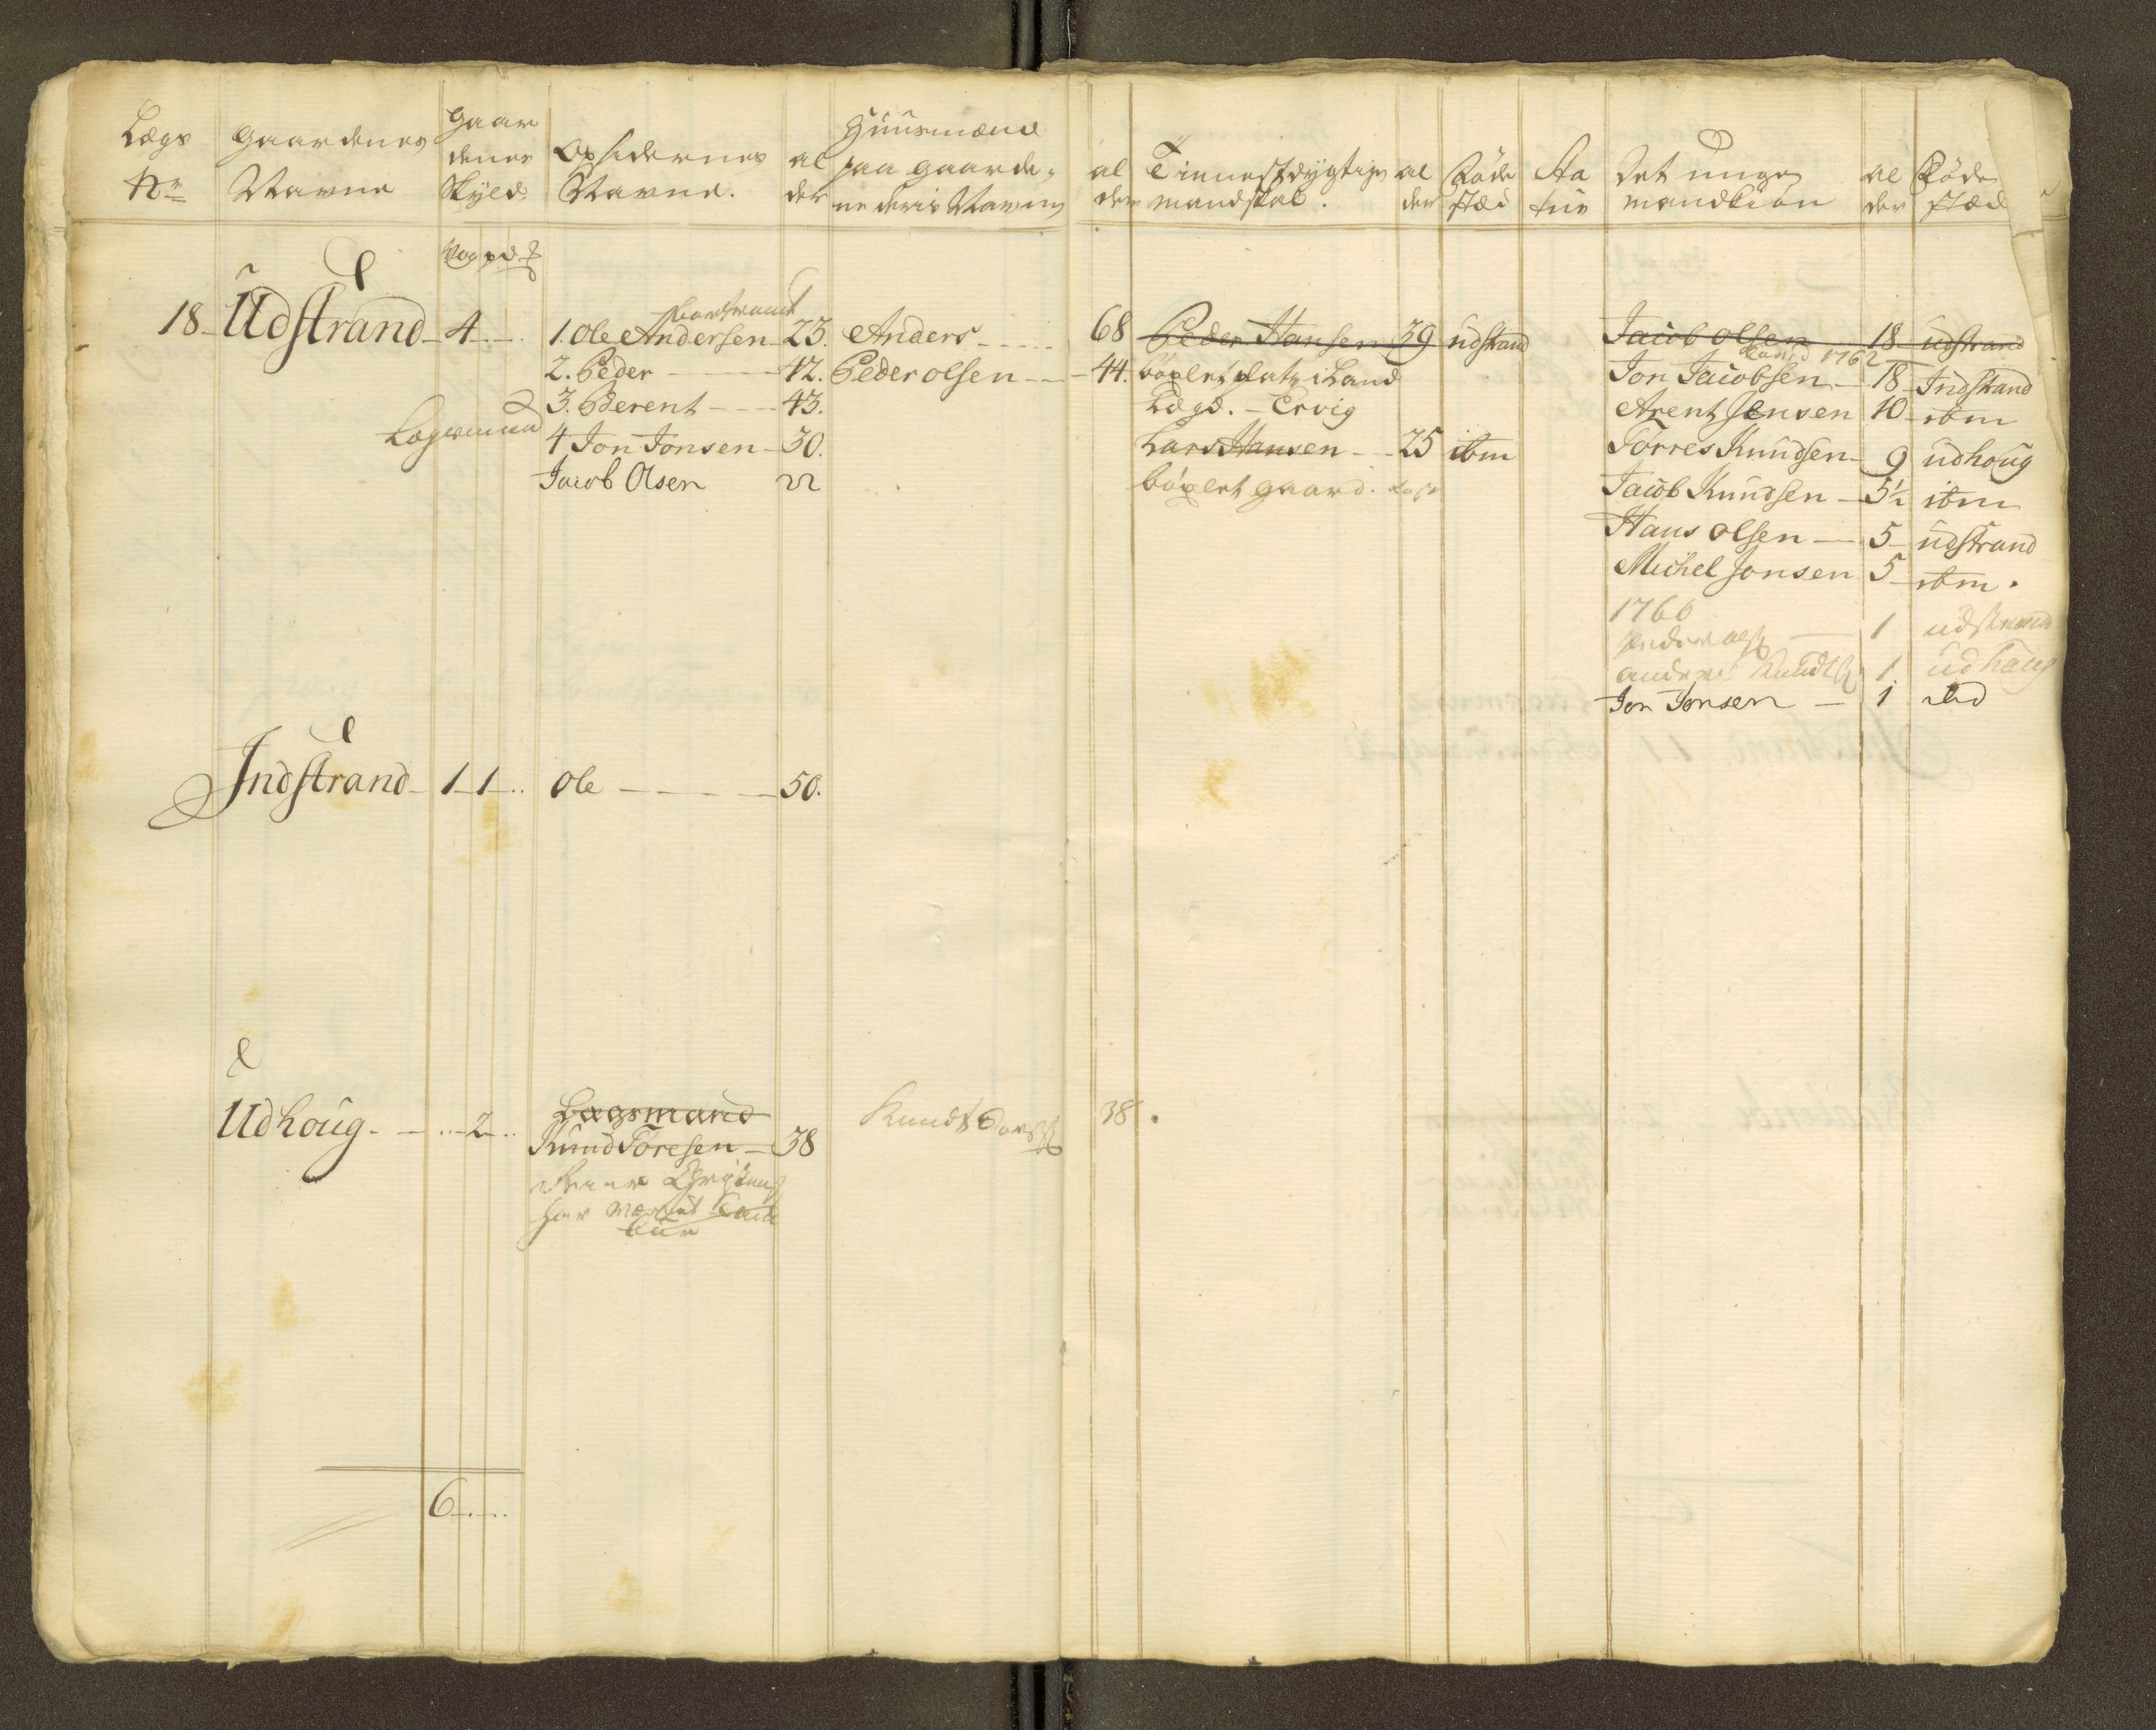 Lægs No
Gaardenes Navne
Gaardenes Skyld
Opsidernes Navne.
alder
Huusmænd paa gaardene deris Navne
alder
Tienestdygtige mandskab.
alder
Føde stæd
Statur
Det unge mandkiøn
alder
Føde stæd
Vog pd
18 Udstrand 4 1. Ole Andersen 23. Anders 68 Peder Hansen 39 udstrand Jacob Olsen 18 udstrand
1762
2. Peder 42. Peder olsen 44. bøxlet platz i Land Jon Jacobsen 18 Indstrand
3. Berent 43. Lægd. - Ervig Arent Jensen 10 ibm
Lægsmand 4 Jon Jonsen 30. Lars Hansen 25 ibm Torres Knudsen 9 udhoug
Jacob Olsen 22 bøxlet gaard. Jacob Knudsen 5½ ibm
Hans olsen 5 udstrand
Michel Jonsen 5 ibm.
1766
1 udstrand
anders Knuds 1 udhaug
Jon Jonsen 1
Indstrand 1 1 Ole 50.
Lægsmand
Udhoug 2 Knud Toresen 38 Knudt 38
har været
6